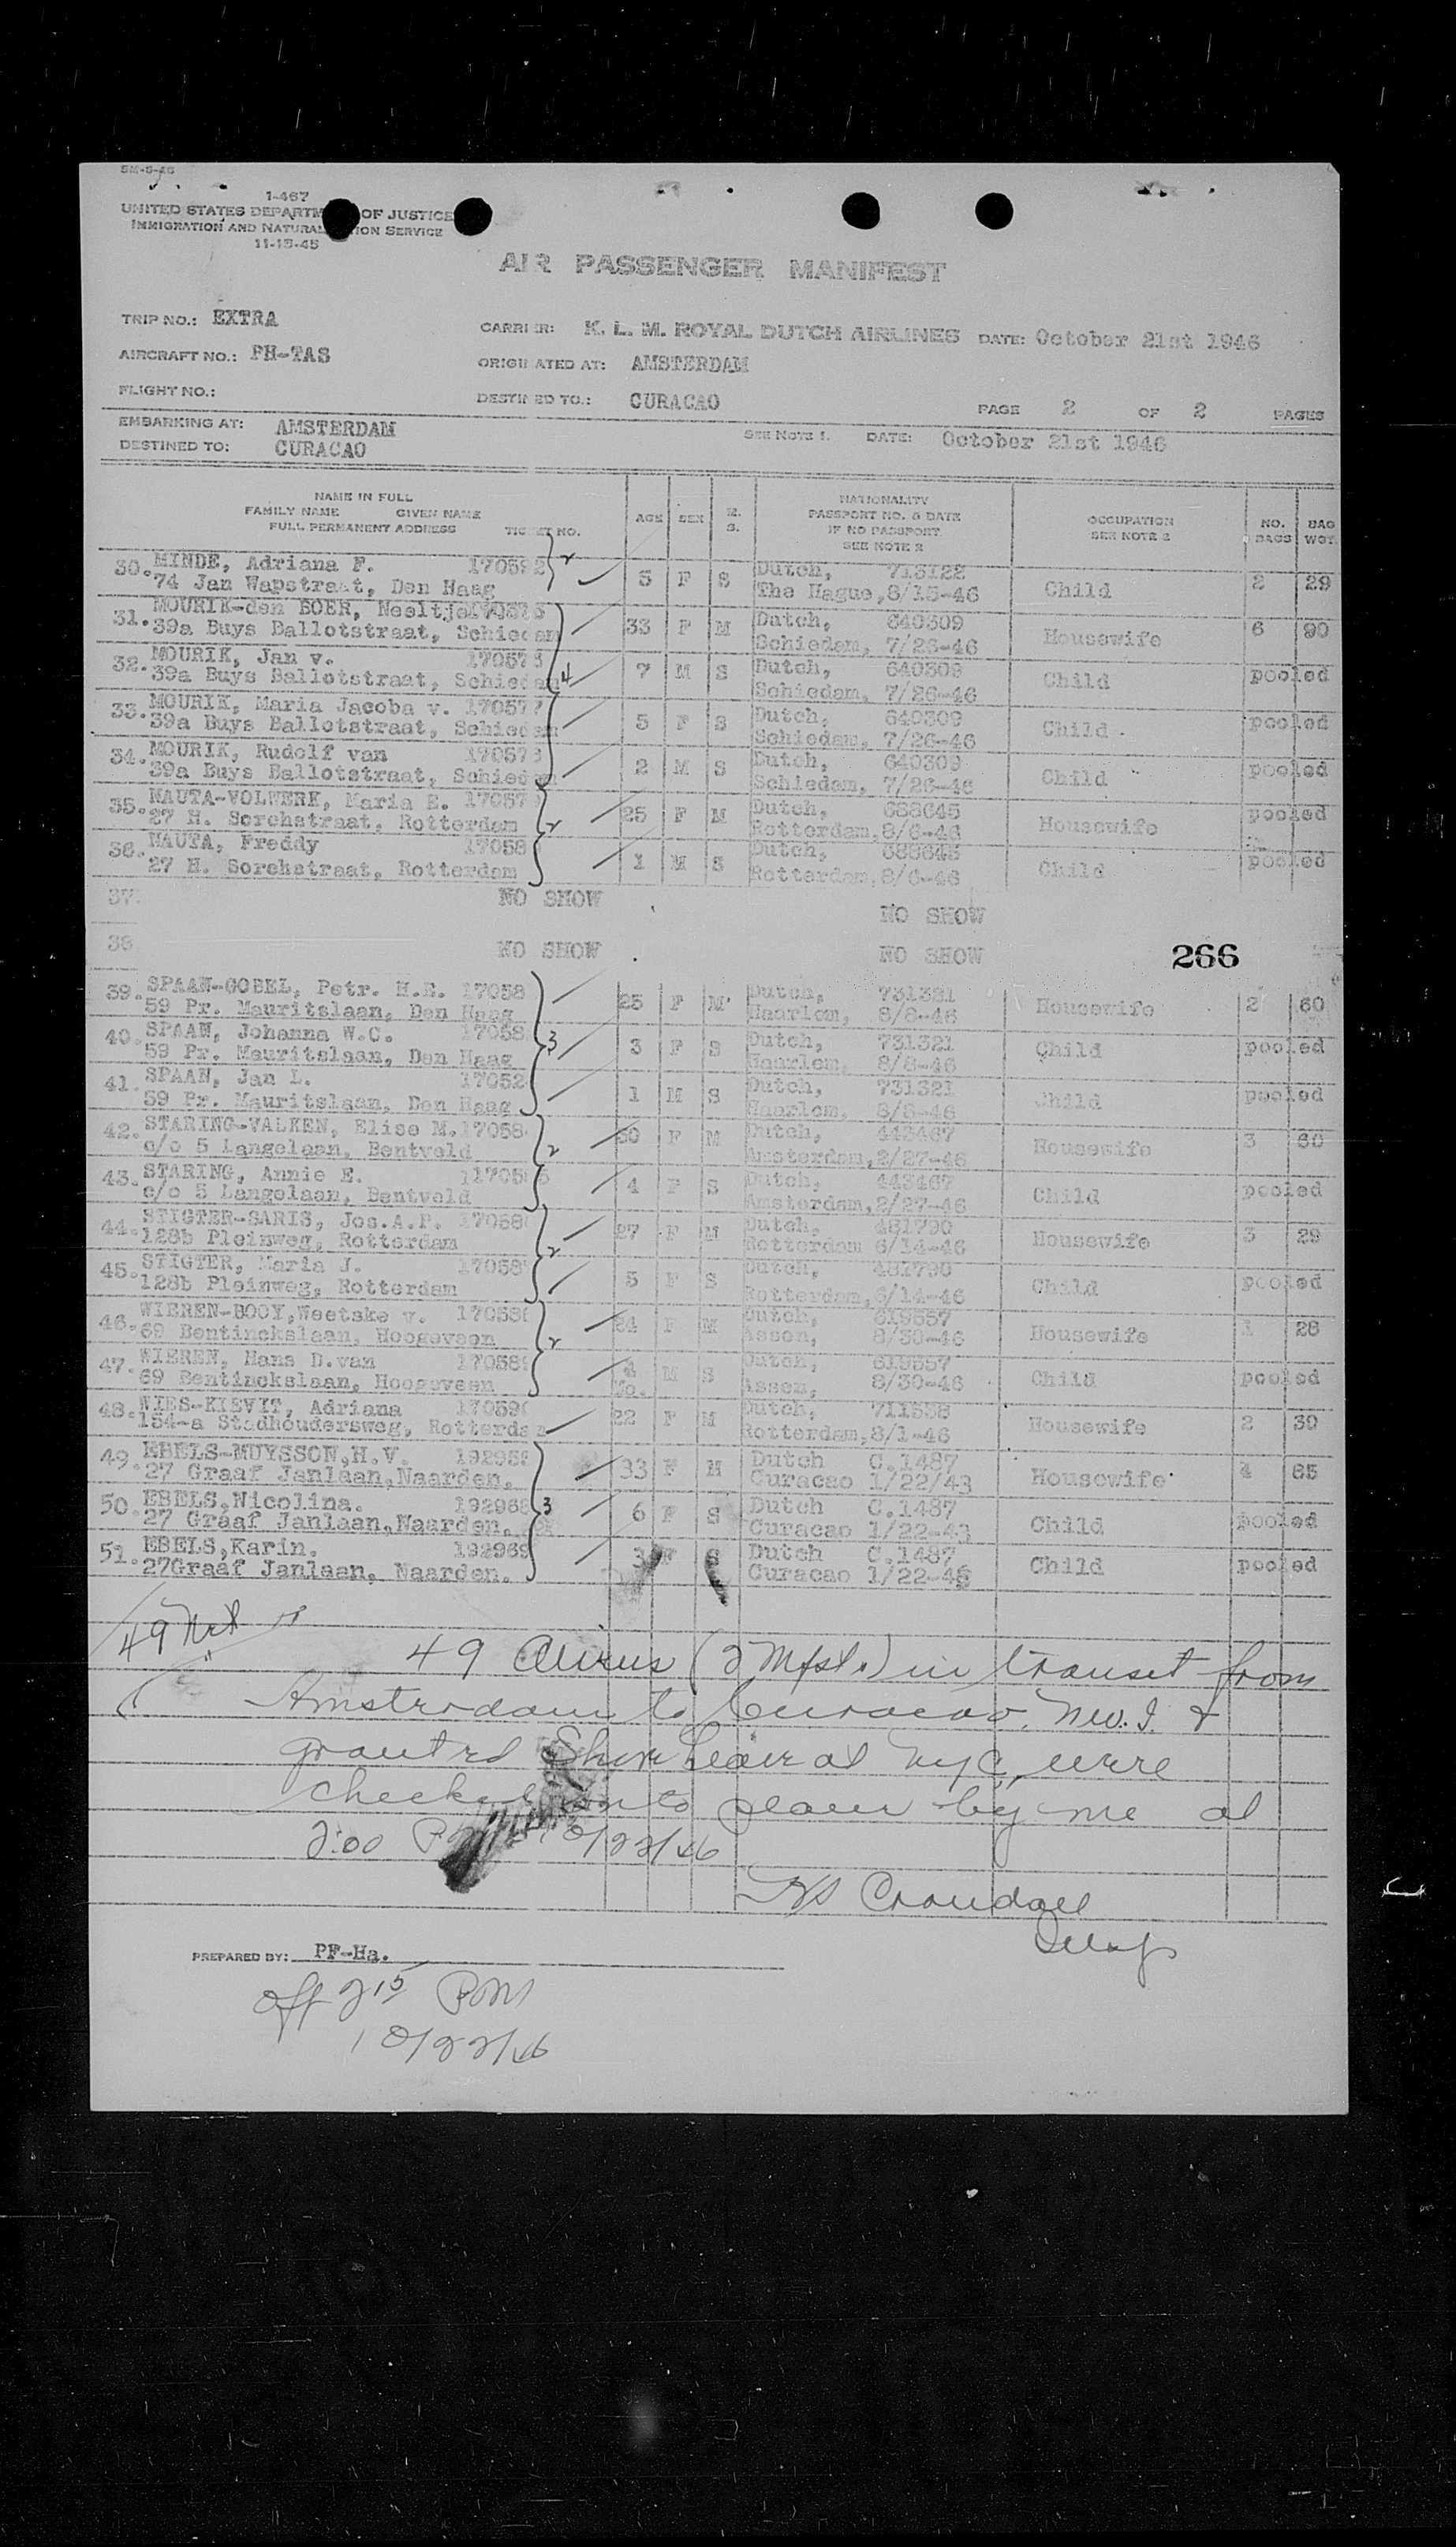 5M-5-46
1-467
UNITED STATES DEPARTM OF JUSTICE
IMMIGRATION AND NATURAL TION SERVICE
11-15-45
AIR PASSENGER MANIFEST
TRIP NO.: EXTRA CARRIER: K. L. M. ROYAL DUTCH AIRLINES DATE: October 21st 1946
AIRCRAFT NO.: PH-TAS ORIGINATED AT: AMSTERDAM
FLIGHT NO.: DESTINED TO.: CURACAO PAGE 2 OF 2 PAGES
EMBARKING AT: AMSTERDAM SEE NOTE 1. DATE: October 21st 1946
DESTINED TO: CURACAO
NAME IN FULL
FAMILY NAME GIVEN NAME
FULL PERMANENT ADDRESS TICKET NO. AGE SEX M. S. NATIONALITY PASSPORT NO. & DATE IF NO PASSPORT SEE NOTE 2 OCCUPATION SEE NOTE 2 NO. BAGS BAG WGT.
30. MINDE, Adriana F. 170592 3 F S Dutch, 713122 Child 2 29
74 Jan Wapstraat, Den Haag The Hague, 8/15-46
31. MOURIK-den BOER, Neeltje 33 F M Dutch, 640309 Housewife 6 90
39a Buys Ballotstraat, Schiedam Schiedam, 7/26-46
32. MOURIK, Jan v. 7 M S Dutch, 640309 Child pooled
39a Buys Ballotstraat, Schiedam Schiedam, 7/26-46
33. MOURIK, Maria Jacoba v. 17057 5 F S Dutch, 640309 Child pooled
39a Buys Ballotstraat, Schiedam Schiedam, 7/26-46
34. MOURIK, Rudolf van 2 M S Dutch, 640309 Child pooled
39a Buys Ballotstraat, Schiedam Schiedam, 7/26-46
35. NAUTA-VOLWERK, Maria E. 17057 25 F M Dutch, 688645 Housewife pooled
27 H. Sorchstraat, Rotterdam Rotterdam, 8/6-46
36. NAUTA, Freddy 17058 1 M S Dutch, 688645 Child pooled
27 H. Sorchstraat, Rotterdam Rotterdam, 8/6-46
37. NO SHOW NO SHOW
38. NO SHOW NO SHOW 266
39. SPAAN-GOBEL, Petr. H.E. 17058 25 F M Dutch, 731321 Housewife 2 60
59 Pr. Mauritslaan, Den Haag Haarlem, 8/8-46
40. SPAAN, Johanna W.C. 17058 3 F S Dutch, 731321 Child pooled
59 Pr. Mauritslaan, Den Haag Haarlem, 8/8-46
41. SPAAN, Jan L. 17052 1 M S Dutch, 731321 Child pooled
59 Pr. Mauritslaan, Den Haag Haarlem, 8/8-46
42. STARING-VALKEN, Elise M. 17058 30 F M Dutch, 443467 Housewife 3 60
c/o 5 Langelaan, Bentveld Amsterdam, 2/27-46
43. STARING, Annie E. 4 F S Dutch, 443467 Child pooled
c/o 5 Langelaan, Bentveld Amsterdam, 2/27-46
44. STIGTER-SARIS, Jos.A.P. 17058 27 F M Dutch, 481790 Housewife 3 29
128b Pleinweg, Rotterdam Rotterdam 6/14-46
45. STIGTER, Maria J. 17058 5 F S Dutch, 481790 Child pooled
128b Pleinweg, Rotterdam Rotterdam, 6/14-46
46. WIEREN-BOOY, Weetske v. 17058 24 F M Dutch, 619557 Housewife 1 26
69 Bentinckslaan, Hoogeveen Assen, 8/30-46
47. WIEREN, Hans D.van 17058 4 Mo. M S Dutch, 619557 Child pooled
69 Bentinckslaan, Hoogeveen Assen, 8/30-46
48. WIES-KIEVIT, Adriana 17059 22 F M Dutch, 711538 Housewife 2 39
154-a Stadhoudersweg, Rotterdam Rotterdam, 8/1-46
49. EBELS-MUYSSON,H.V. 33 F M Dutch C.1487 Housewife 4 65
27 Graaf Janlaan,Naarden. Curacao 1/22/43
50. EBELS,Nicolina. 192968 6 F S Dutch C.1487 Child pooled
27 Graaf Janlaan,Naarden. Curacao 1/22-43
51. EBELS,Karin. 192969 3 F S Dutch C.1487 Child pooled
27Graaf Janlaan, Naarden. Curacao 1/22-43
49
49 Aliens (2 Mfsts) in transit from
Amsterdam to Curacao, N.W.I. &
granted Shore Leave at NYC, were
checked onto plane by me at
2:00 P 10/22/46
Crandall
PREPARED BY: PF-Ha.
Off 2 15 PM
10/22/46